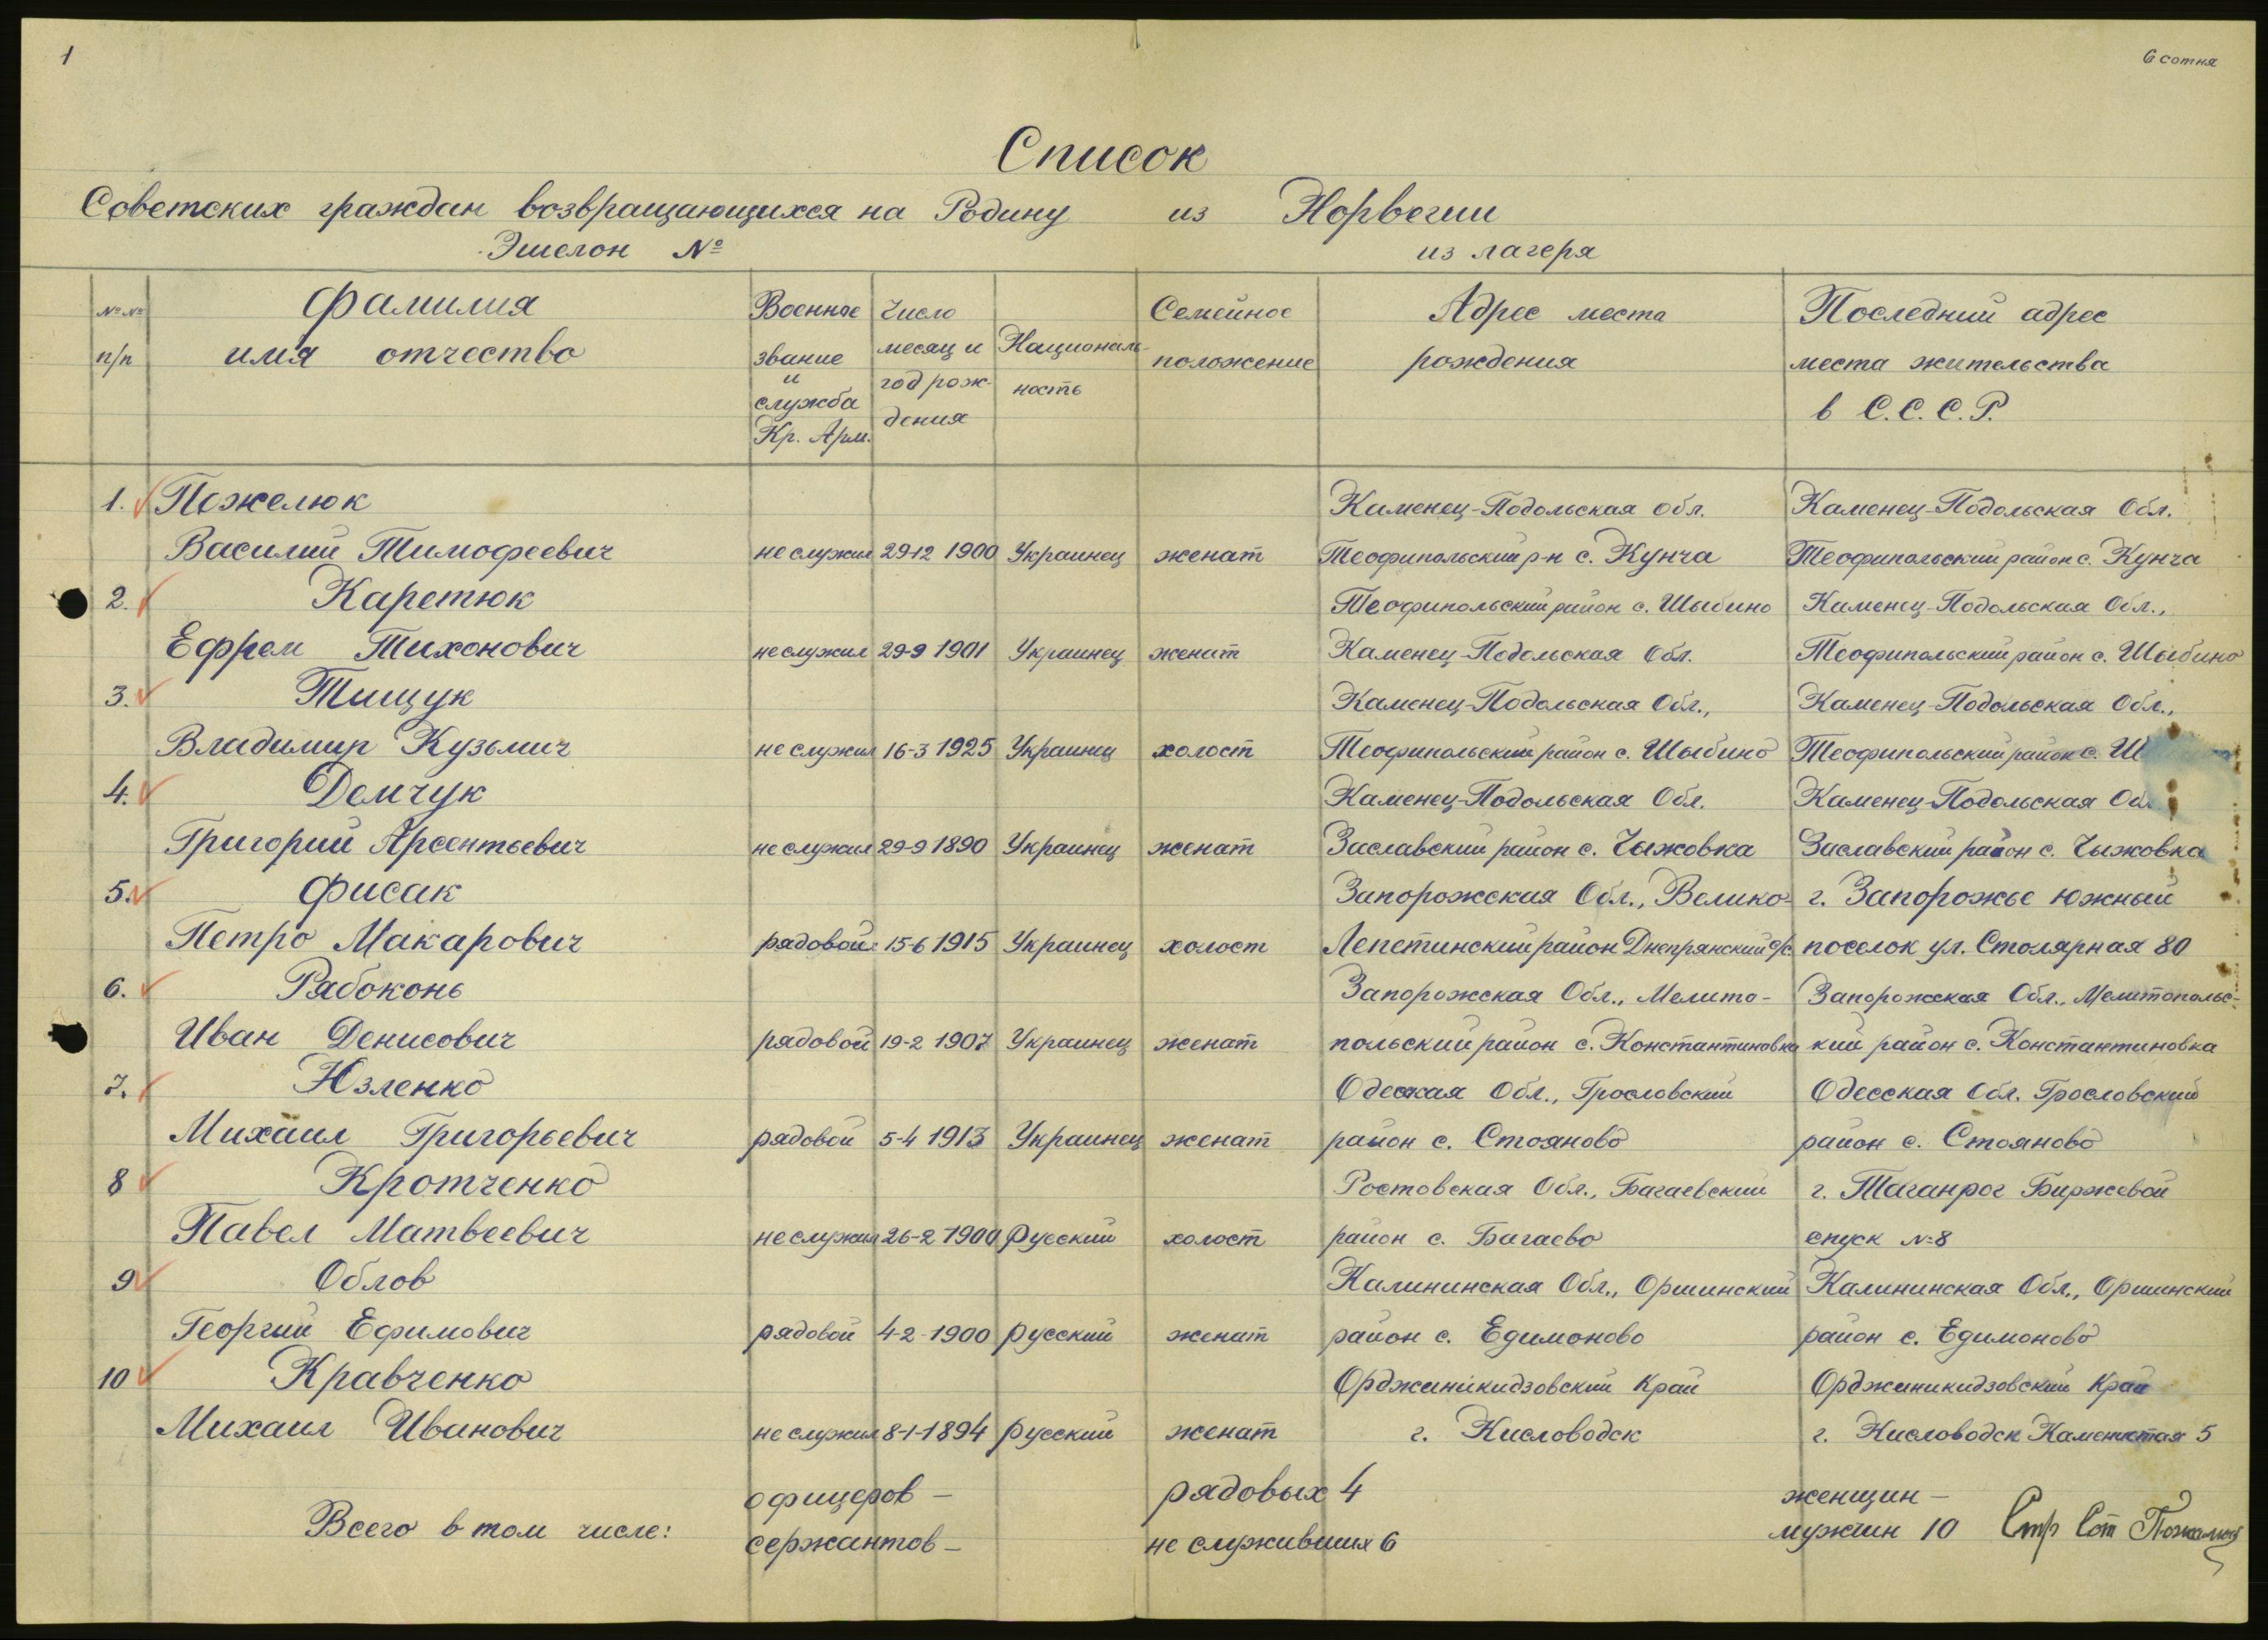 1
6 сотня
Список
Советских граждан возвращающихся на Родину из Норвегии
Эшелон № из лагеря
№№ п/п
Фамилия имя отчество
Военное звание и служба Кр. Арм.
Число месяц и год рож-дения
Националь-ность
Семейное положение
Адрес места рождения
Последний адрес места жительства в С.С.С.Р.
1. Пожелюк Каменец-Подольская обл. Каменец-Подольская Обл.
Василий Тимофеевич не служил 29-12 1900 Украинец женат Теофипольский р-н с. Кунча Теофипольский район с. Кунча
2. Каретюк Теофипольский район с. Шыбино Каменец-Подольская Обл.,
Ефрем Тихонович не служил 29-9 1901 Украинец женат Каменец-Подольская Обл. Теофипольский район с. Шыбино
3. Тищук Каменец-Подольская Обл., Каменец-Подольская Обл.,
Владимир Кузьмич не служил 16-3 1925 Украинец холост Теофипольский район с. Шыбино Теофипольский район с.
4. Демчук Каменец-Подольская Обл. Каменец-Подольская Обл.
Григорий Арсентьевич не служил 29-9 1890 Украинец женат Заславский район с. Чыжовка Заславский район с. Чыжовка
5. Фисак Запорожская Обл., Велико- г. Запорожье южный
Петро Макарович рядовой 15-6 1915 Украинец холост Лепетинский район Днепрянский с/с поселок ул. Столярная 80
6. Рябоконь Запорожская Обл., Мелито- Запорожская Обл., Мелитопольс-
Иван Денисович рядовой 19-2 1907 Украинец женат польский район с. Константиновка кий район с. Константиновка
7. Юзленко Одеская Обл., Грословский Одесская Обл. Грословский
Михаил Григорьевич рядовой 5-4 1913 Украинец женат район с. Стояново район с. Стояново
8 Кротченко Ростовская Обл., Багаевский г. Таганрог Биржевой
Павел Матвеевич не служил 26-2 1900 Русский холост район с. Багаево спуск №8
9 Облов Калининская Обл., Оршинский Калининская Обл., Оршинский
Георгий Ефимович рядовой 4-2-1900 русский женат район с. Едимоново район с. Едимоново
10 Кравченко Орджиникидзовский Край Орджиникидзовский Край
Михаил Иванович не служил 8-1-1894 русский женат г. Кисловодск г. Кисловодск Каменистая 5
офицеров – рядовых 4 женщин –
Всего в том числе: сержантов – не служивших 6 мужчин 10 Стр Сот